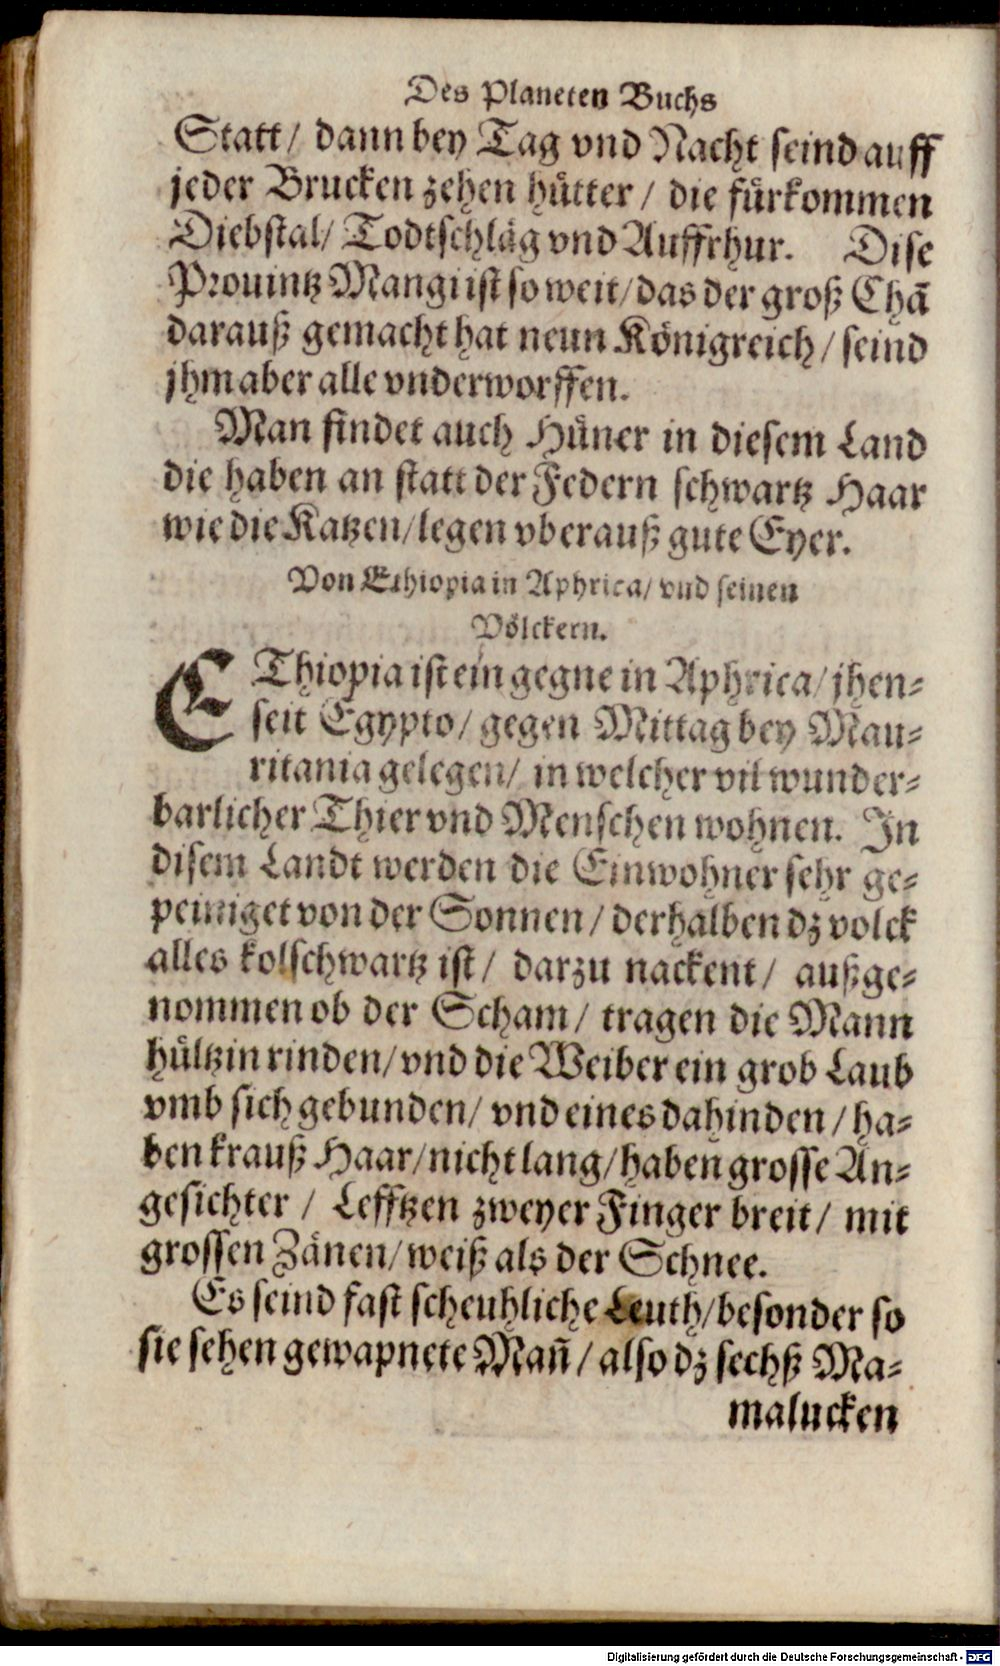 Des Planeten Buchs
Statt/ dann bey Tag vnd Nacht seind auff
jeder Brucken zehen hütter / die fürkommen
Diebstal/ Todtschläg vnd Auffrhur. Dise
Prouintz Mangi ist so weit/das der groß Chā
darauß gemacht hat neun Königreich / seind
jhm aber alle vnderworffen.
Man findet auch Hüner in diesem Land
die haben an statt der Federn schwartz Haar
wie die Katzen/legen vberauß gute Eyer.
Von Ethiopia in Aphrica/ vnd seinen
Völckern.
EThiopia ist ein gegne in Aphrica/ jhen-
seit Egypto/ gegen Mittag bey Mau-
ritania gelegen/ in welcher vil wunder-
barlicher Thier vnd Menschen wohnen. In
disem Landt werden die Einwohner sehr ge-
peiniget von der Sonnen / derhalben dz volck
alles kolschwartz ist / darzu nackent / außge-
nommen ob der Scham / tragen die Mann
hültzin rinden/vnd die Weiber ein grob Laub
vmb sich gebunden/ vnd eines dahinden / ha-
ben krauß Haar/nicht lang/haben grosse An-
gesichter / Lefftzen zweyer Finger breit/ mit
grossen Zänen/weiß als der Schnee.
Es seind fast scheuhliche Leuth/besonder so
sie sehen gewapnete Mañ / also dz sechß Ma-
malucken
Digitalisierung gefördert durch die Deutsche Forschungsgemeinschaft - DFG